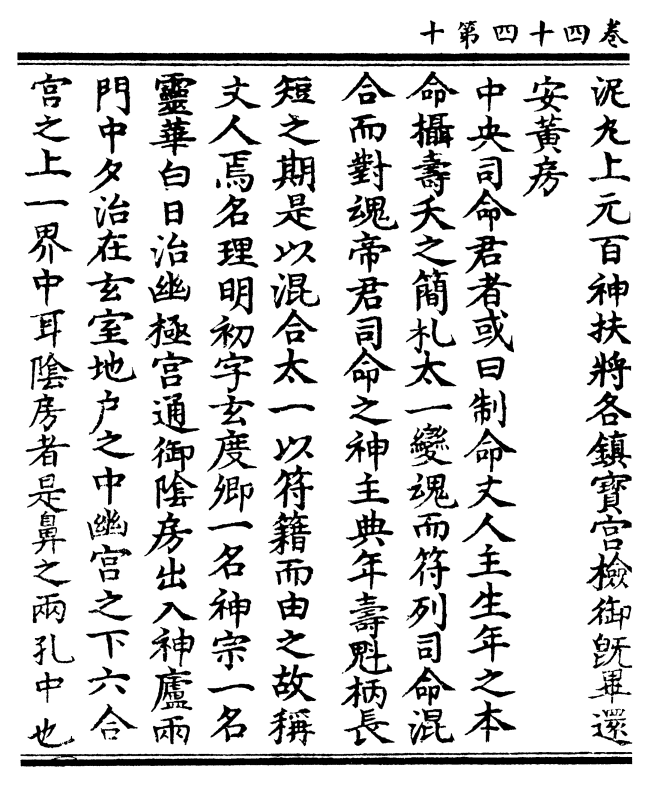 卷四十四第十
泥丸上元百神扶將各鎮寶宮檢御旣畢還
安黃房
中央司命君者或曰制命丈人主生年之本
命攝壽夭之簡札太一變魂而符列司命混
合而對魂帝君司命之神主典年壽魁柄長
短之期是以混合太一以符籍而由之故稱
丈人焉名理明初字玄度卿一名神宗一名
靈華白日治幽極宮通御陰房出入神廬兩
門中夕治在玄室地户之中幽宮之下六合
宮之上一界中耳陰房者是鼻之兩孔中也